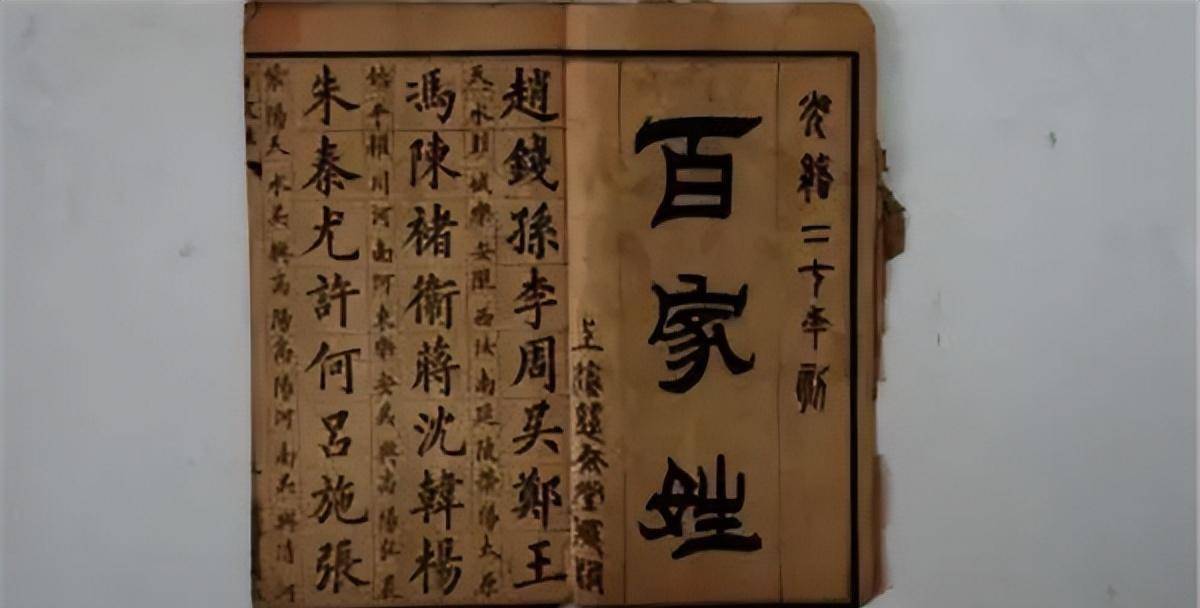 光緒二十年
百家姓
趙錢孫李周吳鄭王
天水彭城樂安隴西汝南延陵滎陽太原
馮陳褚衛蔣沈韓楊
平穎川河南河東樂安吳興南陽弘農
朱秦尤許何呂施張
陽天水吳興高陽陽河南吳興清河